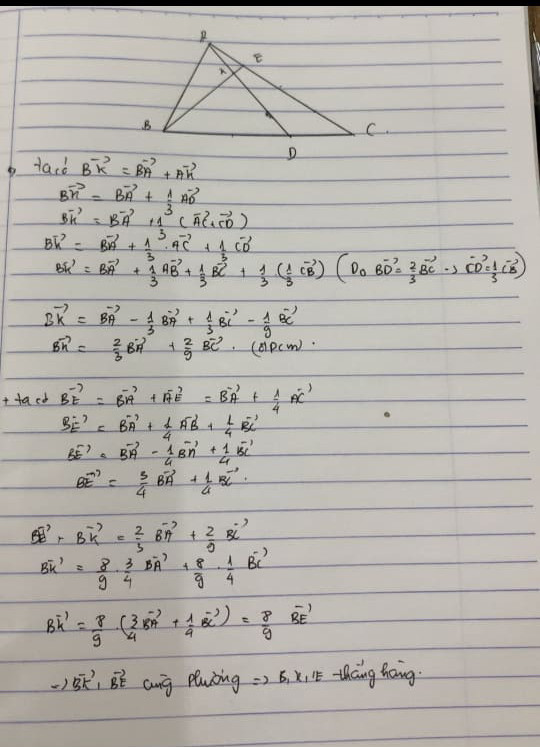 A
E
K
B
C.
D
+ ta có BK⃗ = BA⃗ + AK⃗
BK⃗ = BA⃗ + 1/3 AD⃗
BK⃗ = BA⃗ + 1/3 (AC⃗ + CD⃗)
BK⃗ = BA⃗ + 1/3 . AC⃗ + 1/3 CD⃗
BK⃗ = BA⃗ + 1/3 AB⃗ + 1/3 BC⃗ + 1/3 (1/3 CB⃗) (Do BD⃗ = 2/3 BC⃗ -> CD⃗ = 1/3 CB⃗)
BK⃗ = BA⃗ - 1/3 BA⃗ + 1/3 BC⃗ - 1/9 BC⃗
BK⃗ = 2/3 BA⃗ + 2/9 BC⃗. (đpcm).
+ ta có BE⃗ = BA⃗ + AE⃗ = BA⃗ + 1/4 AC⃗
BE⃗ = BA⃗ + 1/4 AB⃗ + 1/4 BC⃗
BE⃗ = BA⃗ - 1/4 BA⃗ + 1/4 BC⃗
BE⃗ = 3/4 BA⃗ + 1/4 BC⃗.
BK⃗ = 2/3 BA⃗ + 2/9 BC⃗
BK⃗ = 8/9 . 3/4 BA⃗ + 8/9 . 1/4 BC⃗
BK⃗ = 8/9 . (3/4 BA⃗ + 1/4 BC⃗) = 8/9 BE⃗
-> BK⃗, BE⃗ cùng phương => B, K, E thẳng hàng.